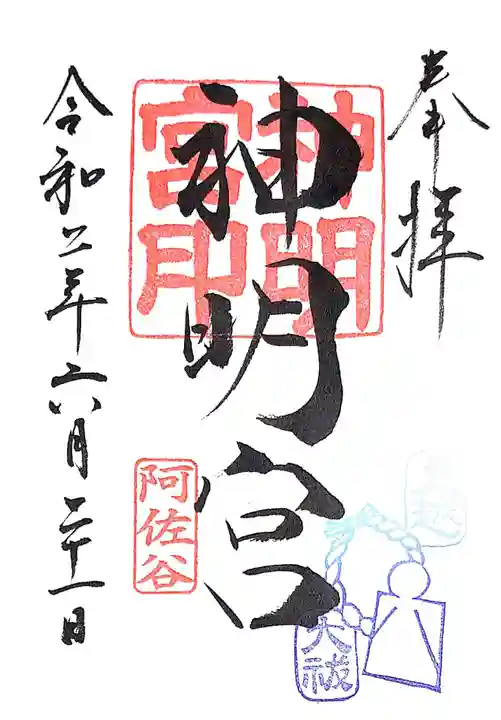 奉拝
神明宮
神明宮印
阿佐谷
令和二年六月二十一日
夏越
大祓